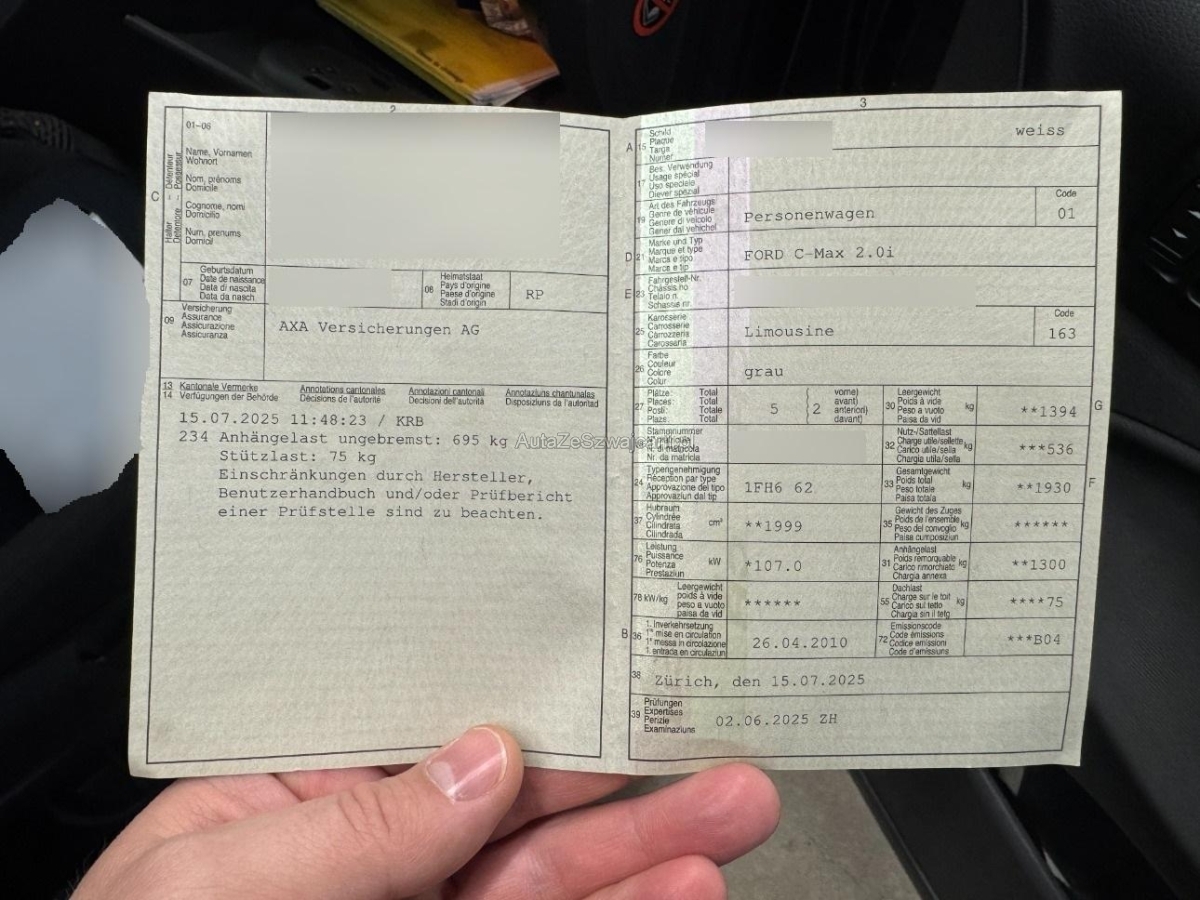 2
01–06
Name, Vornamen
Wohnort
Nom, prénoms
Domicile
Cognome, nomi
Domicilio
Num, prenums
Domicil
C
Halter – Détenteur
Detentore – Possessur
07
Geburtsdatum
Date de naissance
Data di nascita
Data da nasch.
08
Heimatstaat
Pays d'origine
Paese d'origine
Stadi d'origin
RP
09
Versicherung
Assurance
Assicurazione
Assicuranza
AXA Versicherungen AG
13 Kantonale Vermerke Annotations cantonales Annotazioni cantonali Annotaziuns chantunalas
14 Verfügungen der Behörde Décisions de l'autorité Decisioni dell'autorità Disposiziuns da l'autoritad
15.07.2025 11:48:23 / KRB
234 Anhängelast ungebremst: 695 kg
Stützlast: 75 kg
Einschränkungen durch Hersteller,
Benutzerhandbuch und/oder Prüfbericht
einer Prüfstelle sind zu beachten.
3
A 15
Schild
Plaque
Targa
Numer
weiss
17
Bes. Verwendung
Usage spécial
Uso speciale
Diever spezial
19
Art des Fahrzeugs
Genre de véhicule
Genere di veicolo
Gener dal vehichel
Personenwagen
Code
01
D 21
Marke und Typ
Marque et type
Marca e tipo
Marca e tip
FORD C-Max 2.0i
E 23
Fahrgestell-Nr.
Châssis no
Telaio n.
Schassis nr.
25
Karosserie
Carrosserie
Carrozzeria
Carossaria
Limousine
Code
163
26
Farbe
Couleur
Colore
Colur
grau
27
Plätze: Total
Places: Total
Posti: Totale
Plazs: Total
5
2
vorne)
avant)
anteriori)
davant)
30
Leergewicht
Poids à vide
Peso a vuoto
Paisa da vid
kg
**1394
G
Stammnummer
N. di matricola
Nr. da matricla
32
Nutz-/Sattellast
Charge utile/sellette
Carico utile/sella
Chargia utila/sella
kg
***536
24
Typengenehmigung
Réception par type
Approvazione del tipo
Approvaziun dal tip
1FH6 62
33
Gesamtgewicht
Poids total
Peso totale
Paisa totala
kg
**1930
F
37
Hubraum
Cylindrée
Cilindrata
Cilindrada
cm³
**1999
35
Gewicht des Zuges
Poids de l'ensemble
Peso del convoglio
Paisa cumposiziun
kg
******
76
Leistung
Puissance
Potenza
Prestaziun
kW
*107.0
31
Anhängelast
Poids remorquable
Carico rimorchiato
Chargia annexa
kg
**1300
78 kW/kg
Leergewicht
poids à vide
peso a vuoto
paisa da vid
******
55
Dachlast
Charge sur le toit
Carico sul tetto
Chargia sin il tetg
kg
****75
B 36
1. Inverkehrsetzung
1re mise en circulation
1a messa in circolazione
1. entrada en circulaziun
26.04.2010
72
Emissionscode
Code émissions
Codice emissioni
Code d'emissiuns
***B04
38
Zürich, den 15.07.2025
39
Prüfungen
Expertises
Perizie
Examinaziuns
02.06.2025 ZH